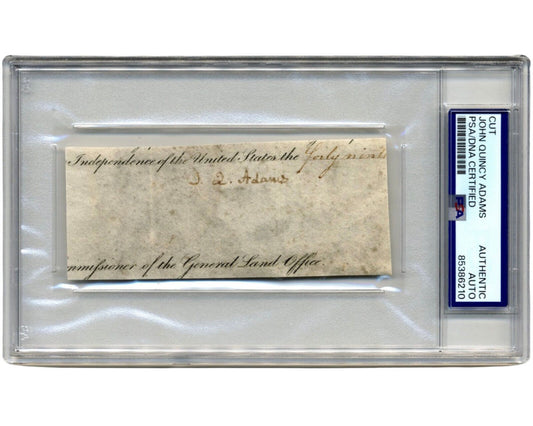 Independence of the United States the forty ninth
J. Q. Adams
mmissioner of the General Land Office.
CUT
JOHN QUINCY ADAMS
PSA/DNA CERTIFIED
PSA
AUTHENTIC
AUTO
85386210